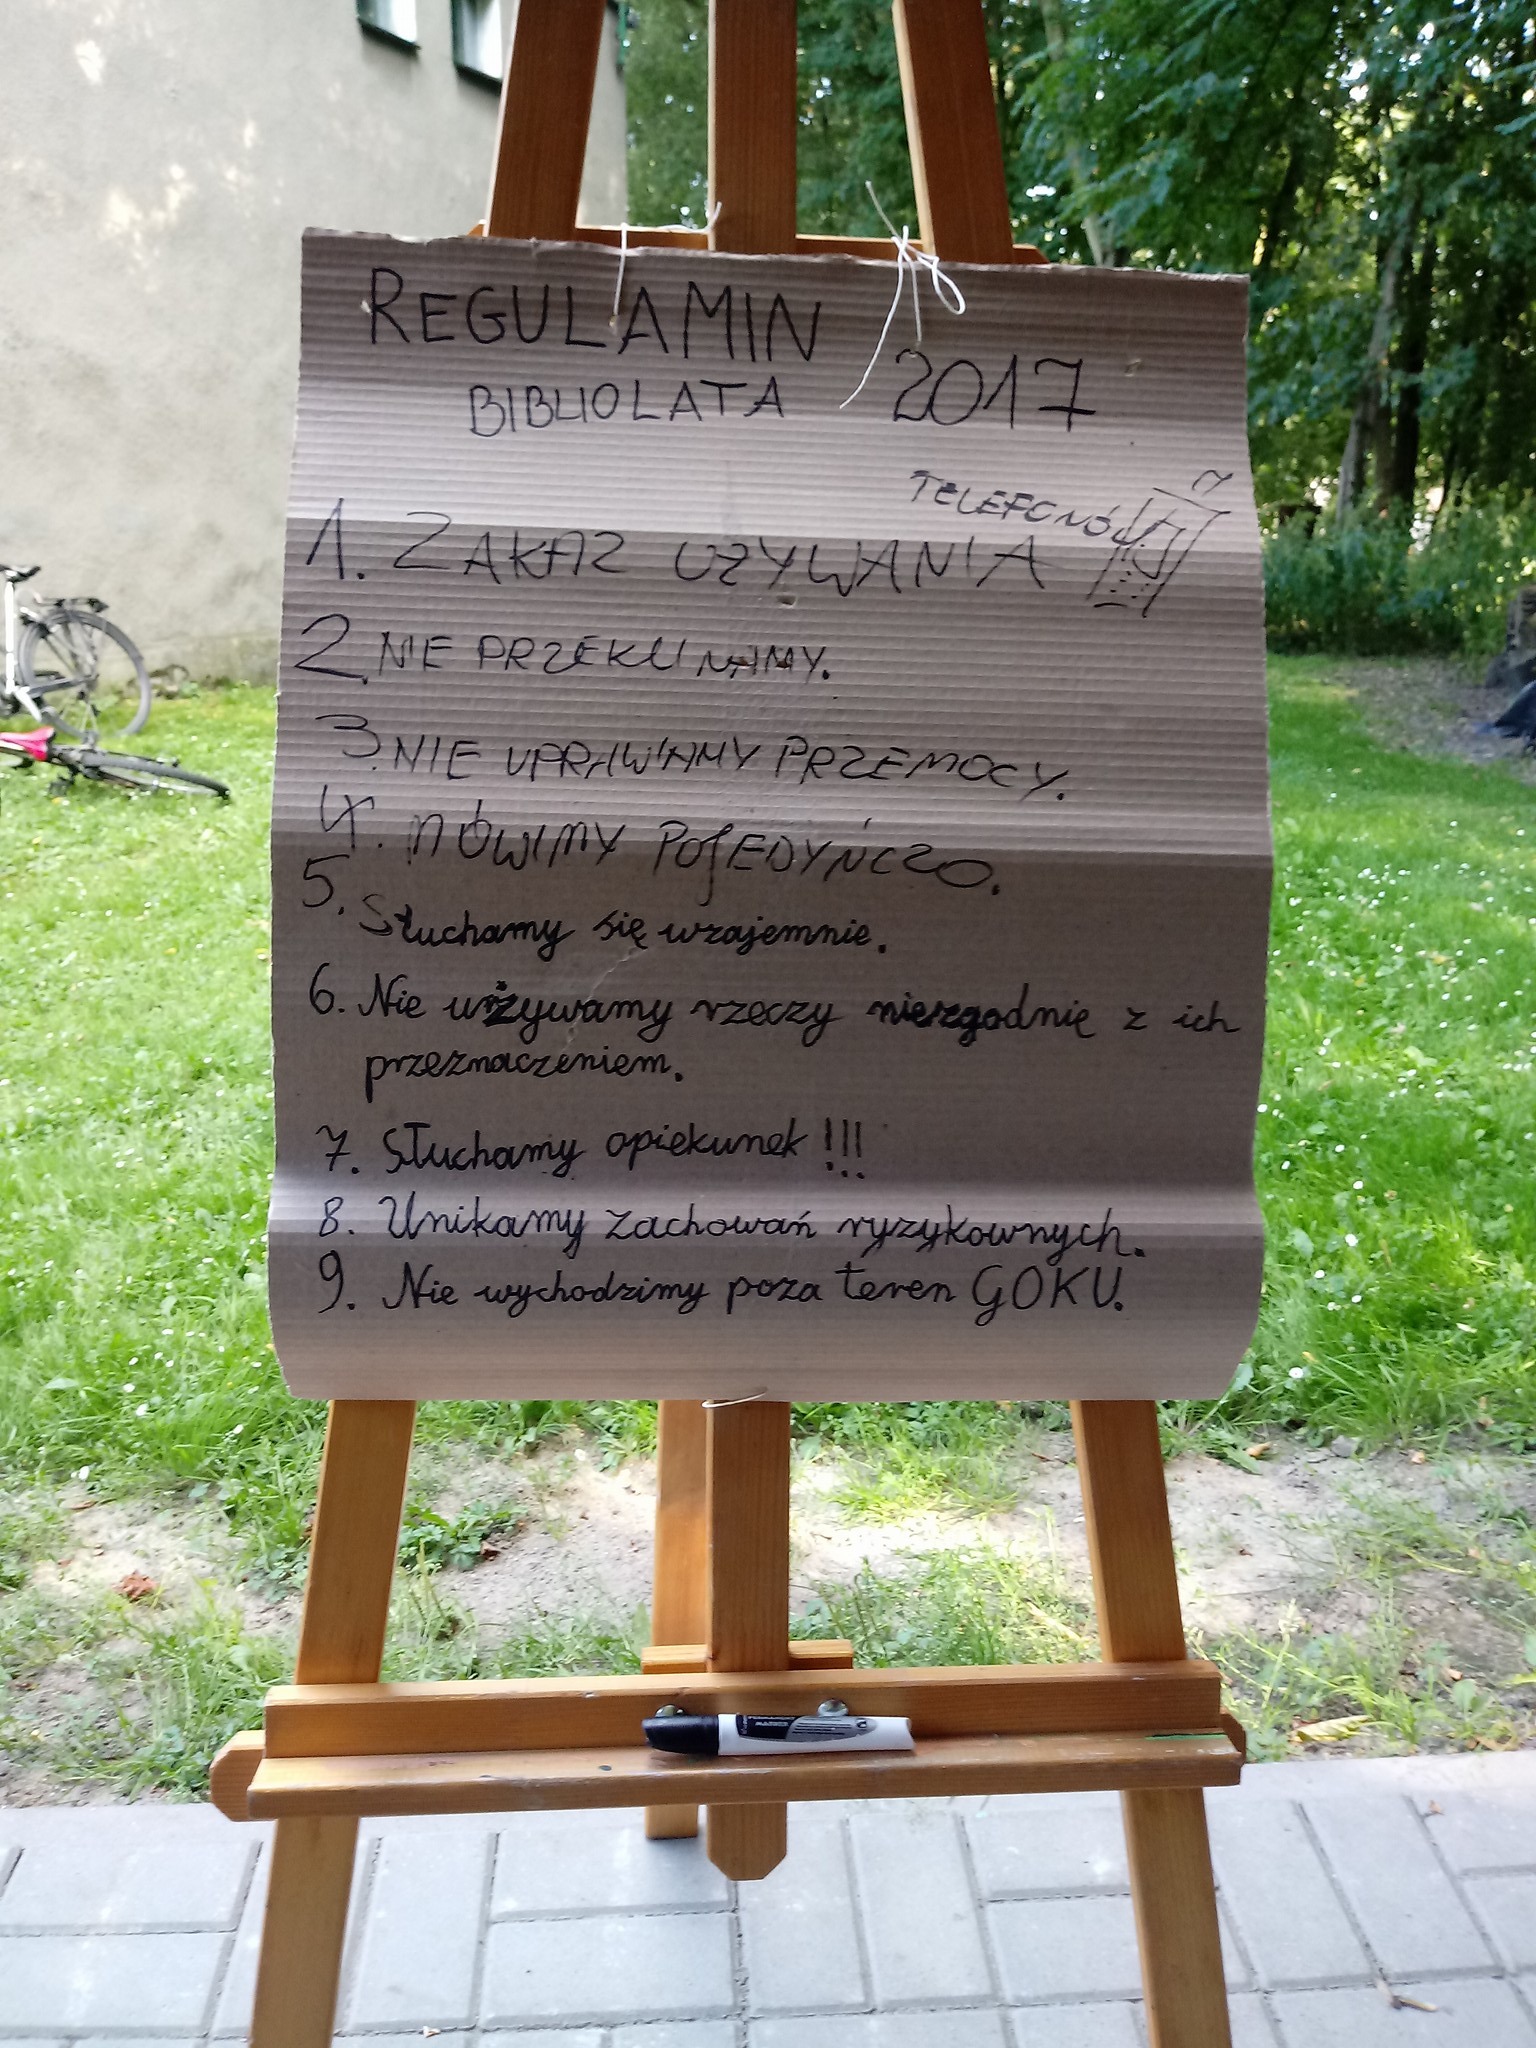 REGULAMIN
BIBLIOLATA 2017
TELEFONÓW
1. ZAKAZ UŻYWANIA
2. NIE PRZEKLINAMY.
3. NIE UPRAWIAMY PRZEMOCY.
4. MÓWIMY POJEDYŃCZO.
5. Słuchamy się wzajemnie.
6. Nie używamy rzeczy niezgodnie z ich
przeznaczeniem.
7. Słuchamy opiekunek !!!
8. Unikamy zachowań ryzykownych.
9. Nie wychodzimy poza teren GOKU.